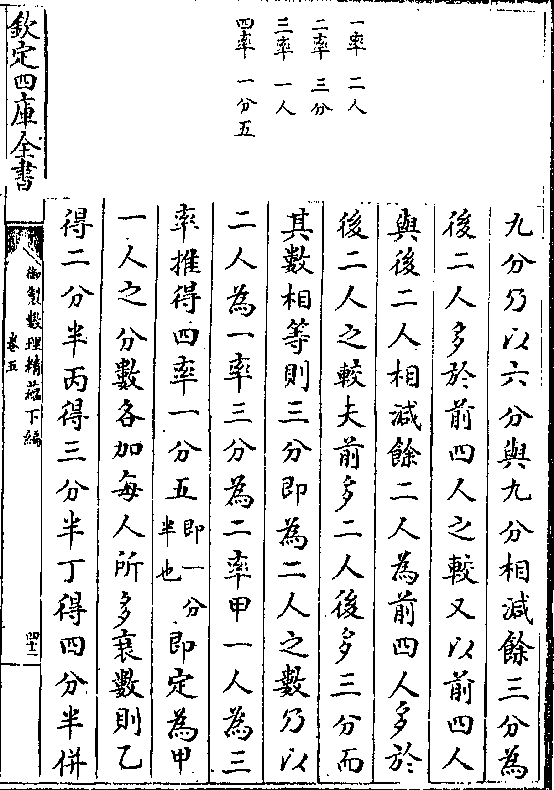 一率　二人
二率　三分
三率　一人
四率　一分五
九分乃以六分與九分相減餘三分為
後二人多於前四人之較又以前四人
與後二人相減餘二人為前四人多於
後二人之較夫前多二人後多三分而
其數相等則三分即為二人之數乃以
二人為一率三分為二率甲一人為三
率推得四率一分五即一分半也即定為甲
一人之分數各加每人所多衰數則乙
得二分半丙得三分半丁得四分半併
欽定四庫全書
御製數理精蘊下編
卷五